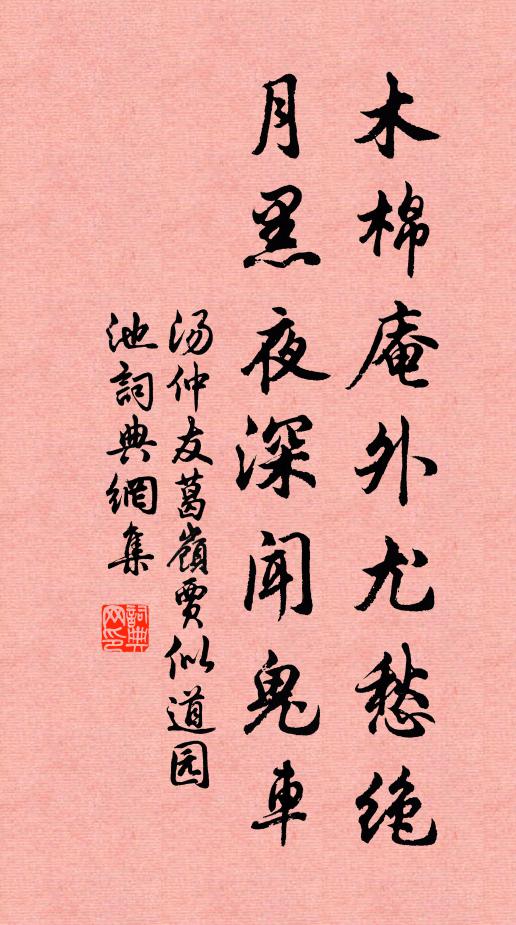 木棉庵外尤愁绝
月黑夜深闻鬼車
汤仲友葛嶺賈似道园
池詞典網集
詞典网印